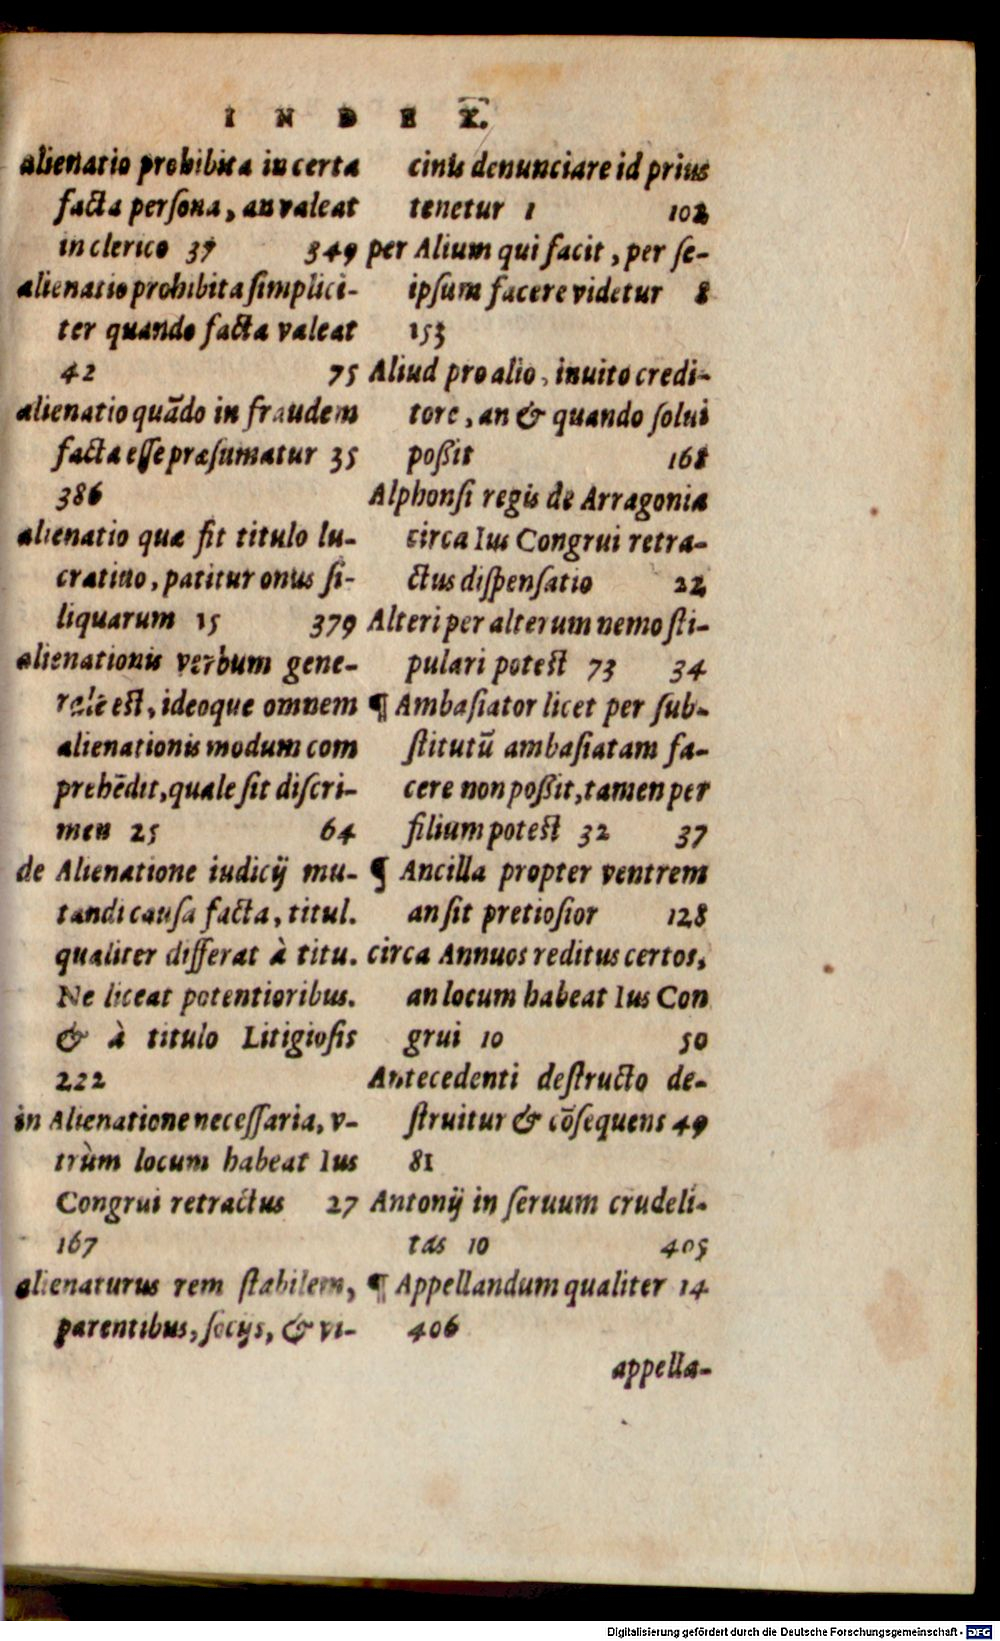 INDEX.
alienatio prohibita in certa
facta persona, an valeat
in clerico 37 349
alienatio prohibita simplici-
ter quando facta valeat
42 75
alienatio quãdo in fraudem
facta esse præsumatur 35
386
alienatio quæ fit titulo lu-
cratiuo, patitur onus si-
liquarum 15 379
alienationis verbum gene-
rale est, ideoque omnem
alienationis modum com
prehẽdit, quale sit discri-
men 25 64
de Alienatione iudicij mu-
tandi causa facta, titul.
qualiter differat à titu.
Ne liceat potentioribus.
& à titulo Litigiosis
222
in Alienatione necessaria, v-
trùm locum habeat Ius
Congrui retractus 27
167
alienaturus rem stabilem,
parentibus, socijs, & vi-
cinis denunciare id prius
tenetur 1 102
per Alium qui facit, per se-
ipsum facere videtur 8
153
Aliud pro alio, inuito credi-
tore, an & quando solui
possit 168
Alphonsi regis de Arragonia
circa Ius Congrui retra-
ctus dispensatio 22
Alteri per alterum nemo sti-
pulari potest 73 34
¶ Ambasiator licet per sub-
stitutũ ambasiatam fa-
cere non possit, tamen per
filium potest 32 37
¶ Ancilla propter ventrem
an sit pretiosior 128
circa Annuos reditus certos,
an locum habeat Ius Con
grui 10 50
Antecedenti destructo de-
struitur & cõsequens 49
81
Antonij in seruum crudeli-
tas 10 405
¶ Appellandum qualiter 14
406
appella-
Digitalisierung gefördert durch die Deutsche Forschungsgemeinschaft - DFG